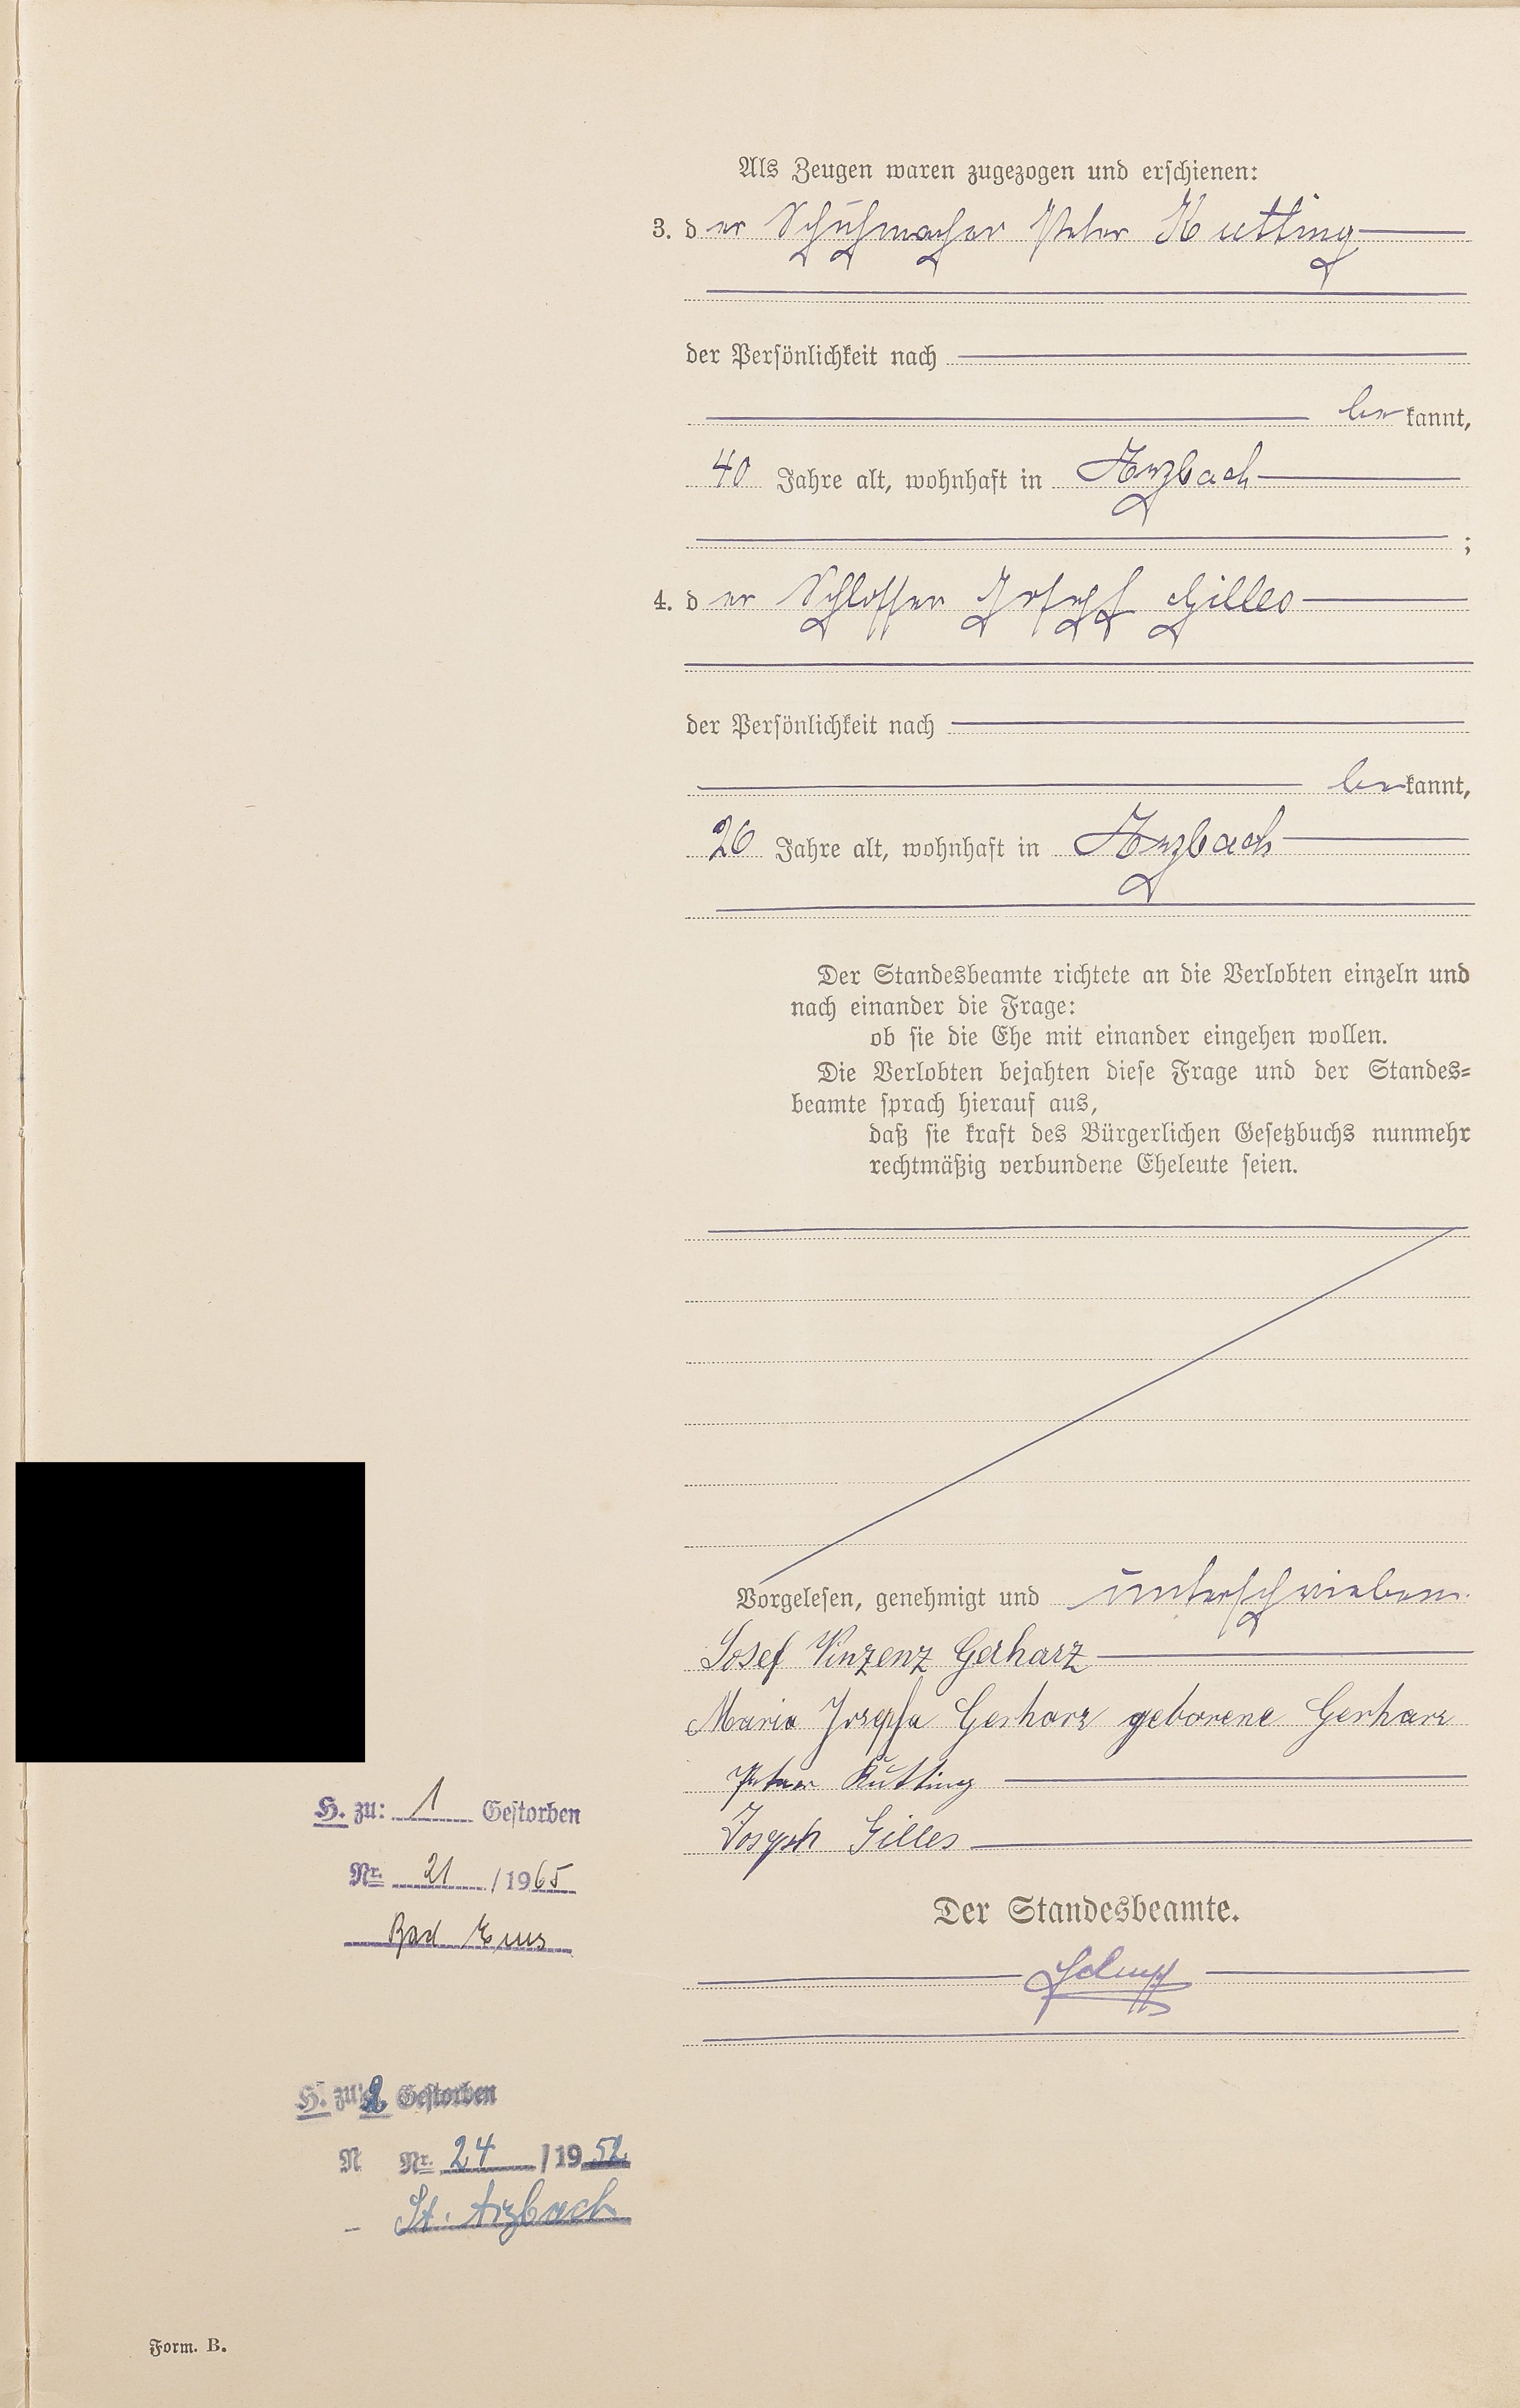 Als Zeugen waren zugezogen und erschienen:
3. der Schuhmacher Peter Kutting
der Persönlichkeit nach
bekannt,
40 Jahre alt, wohnhaft in Arzbach
;
4. der Schlosser Joseph Gilles
der Persönlichkeit nach
bekannt,
26 Jahre alt, wohnhaft in Arzbach
Der Standesbeamte richtete an die Verlobten einzeln und
nach einander die Frage:
ob sie die Ehe mit einander eingehen wollen.
Die Verlobten bejahten diese Frage und der Standes-
beamte sprach hierauf aus,
daß sie kraft des Bürgerlichen Gesetzbuchs nunmehr
rechtmäßig verbundene Eheleute seien.
Vorgelesen, genehmigt und unterschrieben.
Josef Vinzenz Gerharz
Maria Josepha Gerharz geborene Gerharz
Peter Kutting
Joseph Gilles
Der Standesbeamte.
H. zu: 1 Gestorben
Nr. 21 / 1965
Bad Ems
H. zu 2 Gestorben
N Nr. 24 / 1952
St. Arzbach
Form. B.